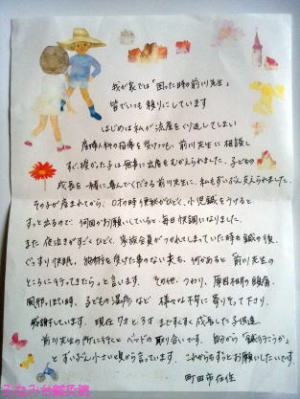 我が家では「困った時の前川先生」
皆でいつも頼りにしています
はじめは私が流産をくり返してしまい
産婦人科の指導を受けつつ、前川先生に相談し
すぐ授かった子は無事に出産をむかえられました。子どもの
成長を一緒に喜んでくださる前川先生に、私もずいぶん支えられました。
その子が産まれてから、0才の時も夜泣がひどく、小児鍼をうけると
すっと出るので、何回かお願いしていると毎日快調になりました。
また夜泣きがすごくひどく、家族全員がつかれてしまっていた時も鍼の後、
ぐっすり快眠。施術を受けた事のない夫も、何かあると 前川先生の
ところに行ってきたら。と言います。その他、つわり、原因不明の腹痛、
風邪ひき時、子どもの湿疹など 様々な不調に寄りそって下さり、
感謝しています。現在 7才と3才 まですくすく成長した子供達。
前川先生の所に行くと ベッドの取り合いです。自分から「鍼を行こうか」
とずいぶん小さい頃から言っています。これからもずっとお願いしたいです。
町田市在住
みなみ台鍼灸院